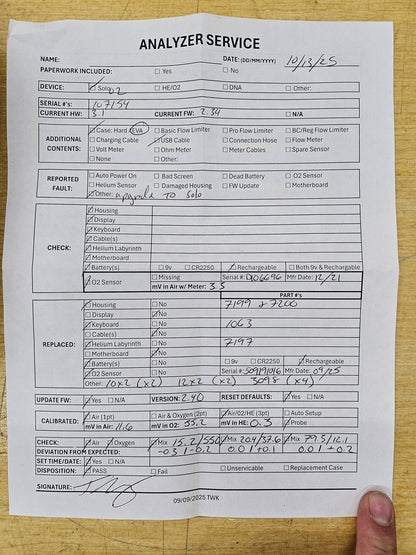 ANALYZER SERVICE
NAME: DATE: (DD/MM/YYYY) 10/13/25
PAPERWORK INCLUDED: ☐ Yes ☐ No
DEVICE: ☑ Solo O2 ☐ HE/O2 ☐ DNA ☐ Other:
SERIAL #'s: 107154
CURRENT HW: 3.1 CURRENT FW: 2.34 ☐ N/A
ADDITIONAL CONTENTS:
☑ Case: Hard / EVA ☐ Basic Flow Limiter ☐ Pro Flow Limiter ☐ BC/Reg Flow Limiter
☐ Charging Cable ☑ USB Cable ☐ Connection Hose ☐ Flow Meter
☐ Volt Meter ☐ Ohm Meter ☐ Meter Cables ☐ Spare Sensor
☐ None ☐ Other:
REPORTED FAULT:
☐ Auto Power On ☐ Bad Screen ☐ Dead Battery ☐ O2 Sensor
☐ Helium Sensor ☐ Damaged Housing ☐ FW Update ☐ Motherboard
☑ Other: upgrade TO Solo
CHECK:
☑ Housing
☑ Display
☑ Keyboard
☑ Cable(s)
☑ Helium Labyrinth
☑ Motherboard
☑ Battery(s) ☐ 9v ☐ CR2250 ☑ Rechargeable ☐ Both 9v & Rechargeable
☑ O2 Sensor ☐ Missing Serial #: D106696 Mfr Date: 12/21
mV in Air w/ Meter: 3.5
PART #'s
REPLACED:
☑ Housing ☐ No 7199 & 7200
☐ Display ☑ No
☑ Keyboard ☐ No 1063
☐ Cable(s) ☑ No
☑ Helium Labyrinth ☐ No 7197
☐ Motherboard ☑ No
☑ Battery(s) ☐ No ☐ 9v ☐ CR2250 ☑ Rechargeable
☑ O2 Sensor ☐ No Serial #: Mfr Date: 09/25
Other: 10x2 (x2) 12x2 (x2) 3098 (x4)
UPDATE FW: ☑ Yes ☐ N/A VERSION: 2.40 RESET SETTINGS: ☑ Yes ☐ N/A
CALIBRATED: ☑ Air (1pt) ☐ Air & Oxygen (2pt) ☑ Air/02/HE (3pt) ☐ Auto Setup
mV in Air: 11.6 mV in O2: 55.2 mV in HE: 0.3 ☑ Probe
CHECK: ☑ Air ☑ Oxygen ☑ Mix 15.2/55.0 ☑ Mix 20.4/37.6 ☑ Mix 79.5/12.1
DEVIATION FROM EXPECTED: -0.3 1-0.2 0.0 1+0.1 0.0 1+0.2
SET TIME/DATE: ☑ Yes ☐ N/A
DISPOSITION: ☑ PASS ☐ Fail ☐ Unserviceable ☐ Replacement Case
SIGNATURE:
09/09/2025 TWK